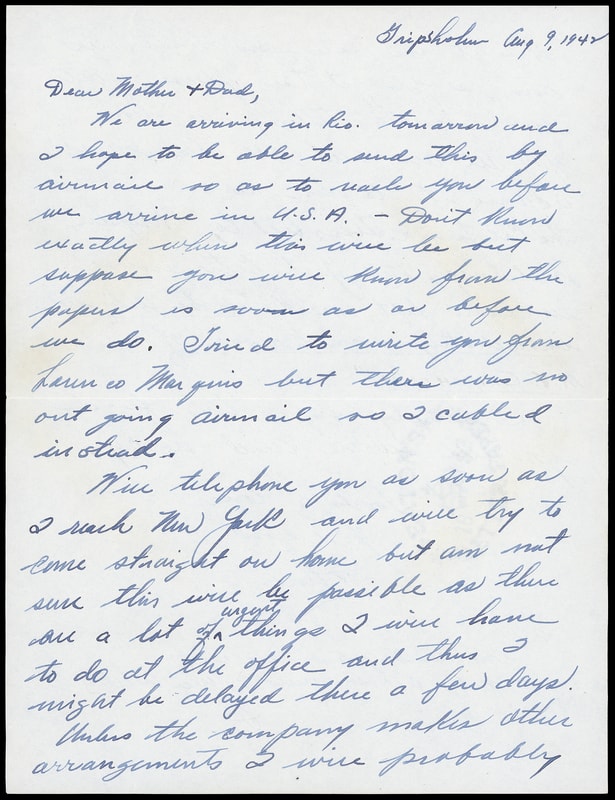 Gripsholm Aug 9, 1942
Dear Mother + Dad,
We are arriving in Rio. tomorrow and
I hope to be able to send this by
airmail so as to reach you before
we arrive in U.S.A. - Don't know
exactly when this will be but
suppose you will know from the
papers as soon as or before
we do. Tried to write you from
Lourenco Marquis but there was no
out going airmail so I cabled
instead.
Will telephone you as soon as
I reach New York and will try to
come straight on home but am not
sure this will be possible as there
are a lot of urgent things I will have
to do at the office and thus I
might be delayed there a few days.
Unless the company makes other
arrangements I will probably